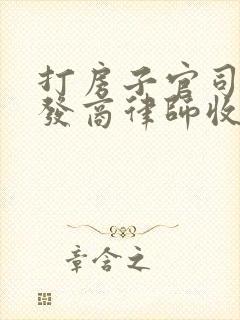 打房子官司
發商律師收
章含之